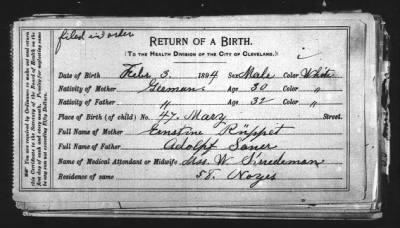 filed in order
RETURN OF A BIRTH.
(TO THE HEALTH DIVISION OF THE CITY OF CLEVELAND.)
Date of Birth Febr. 3. 1894 Sex Male Color White
Nativity of Mother German Age 30 Color "
Nativity of Father " Age 32 Color "
Place of Birth (of child) No. 47. Mary Street.
Full Name of Mother Ernstine Rüppit
Full Name of Father Adolpf Saner
Name of Medical Attendant or Midwife Mrs. W.
Residence of same 58. Noyes
You are required by Ordinance to make out and return this Certificate to the Secretary of the Board of Health on the first day of each and every month. Penalty for neglecting same any sum not exceeding Fifty Dollars.